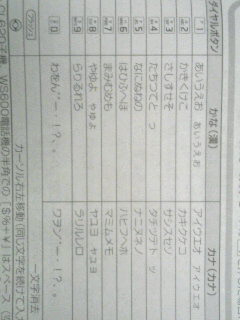 ダイヤルボタン かな(漢) カナ(カナ)
1 あいうえお ぁぃぅぇぉ アイウエオ ァィゥェォ
2 かきくけこ カキクケコ
3 さしすせそ サシスセソ
4 たちつてと っ タチツテト ッ
5 なにぬねの ナニヌネノ
6 はひふへほ ハヒフヘホ
7 まみむめも マミムメモ
8 やゆよ ゃゅょ ヤユヨ ャュョ
9 らりるれろ ラリルレロ
0 わをん゛゜ー!?、。 ワヲン゛゜ー!?、。
カーソル右左移動(同じ文字を続けて入
クリア 一文字消去